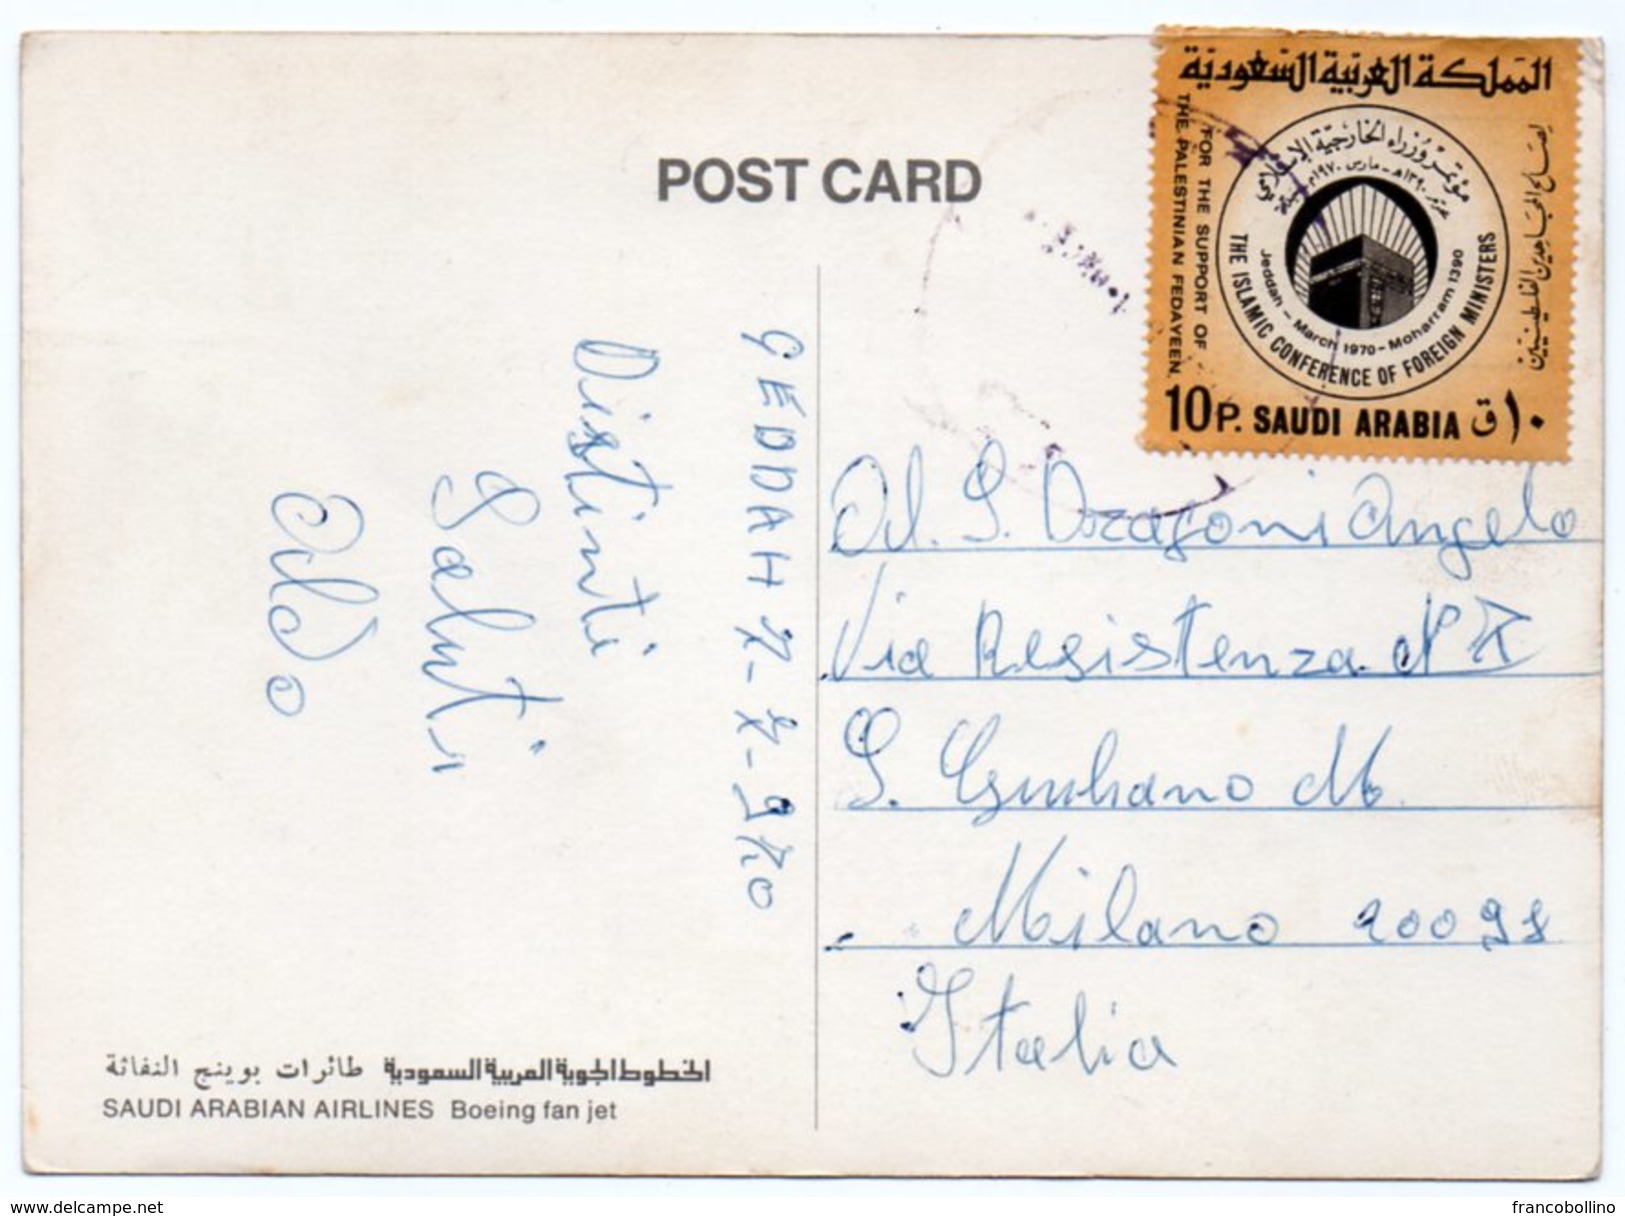 POST CARD
المملكة العربية السعودية
FOR THE SUPPORT OF
THE PALESTINIAN FEDAYEEN.
مؤتمر وزراء الخارجية الإسلامي
THE ISLAMIC CONFERENCE OF FOREIGN MINISTERS
Jeddah - March 1970 - Moharram 1390
لصالح المجاهدين الفلسطينيين
10 P. SAUDI ARABIA ١٠ ق
GEDDAH 7-7-970
Distinti
Saluti
Aldo
Al. S. Arragoni Angelo
Via Resistenza N° 7
S. Giuliano M
Milano 20098
Italia
الخطوط الجوية العربية السعودية طائرات بوينج النفاثة
SAUDI ARABIAN AIRLINES Boeing fan jet
delcampe.net
francobollino